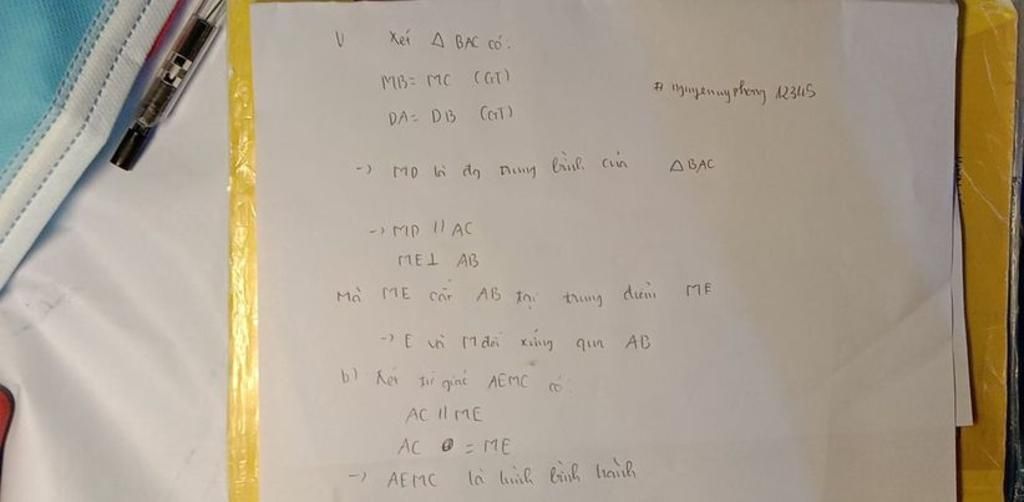 Xét △ BAC có:
MB = MC (GT)
# nguyenuyphong 12345
DA = DB (GT)
-> MD là đg trung bình của △BAC
-> MD // AC
ME ⊥ AB
Mà ME cắt AB tại trung điểm ME
-> E và M đối xứng qua AB
b) Xét tứ giác AEMC có:
AC // ME
AC = ME
-> AEMC là hình bình hành